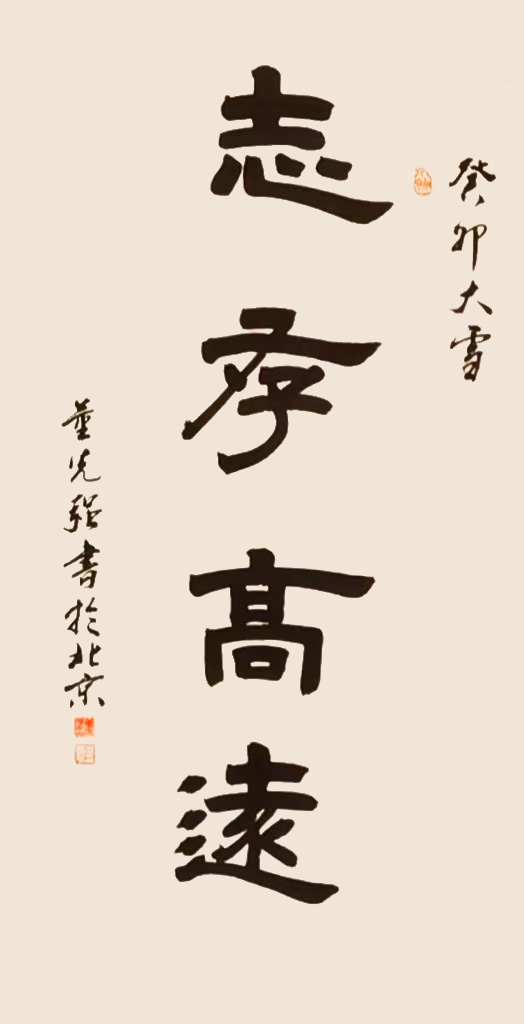 癸卯大雪
志存高遠
董先强書於北京